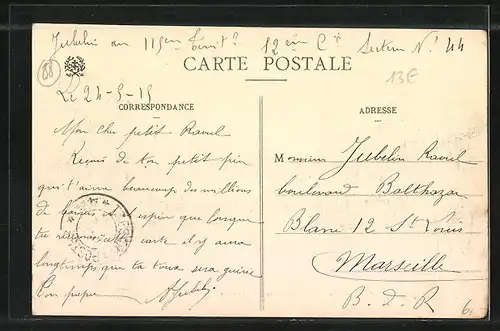 Jubelin au 115em Territ. 12em Cie Secteur No 44
88
CARTE POSTALE
13E
Le 24-5-15
CORRESPONDANCE
ADRESSE
Mon cher petit Raoul
Reçois de ton petit père
qui t'aime beaucoup des millions
de baisers et j'espère que lorsque
tu recevras cette carte il y aura
longtemps que ta toux sera guérie
Ton papa AJubelin
Monsieur Jubelin Raoul
boulevard Balthazar
Blanc 12 St Louis
Marseille
B. d. R